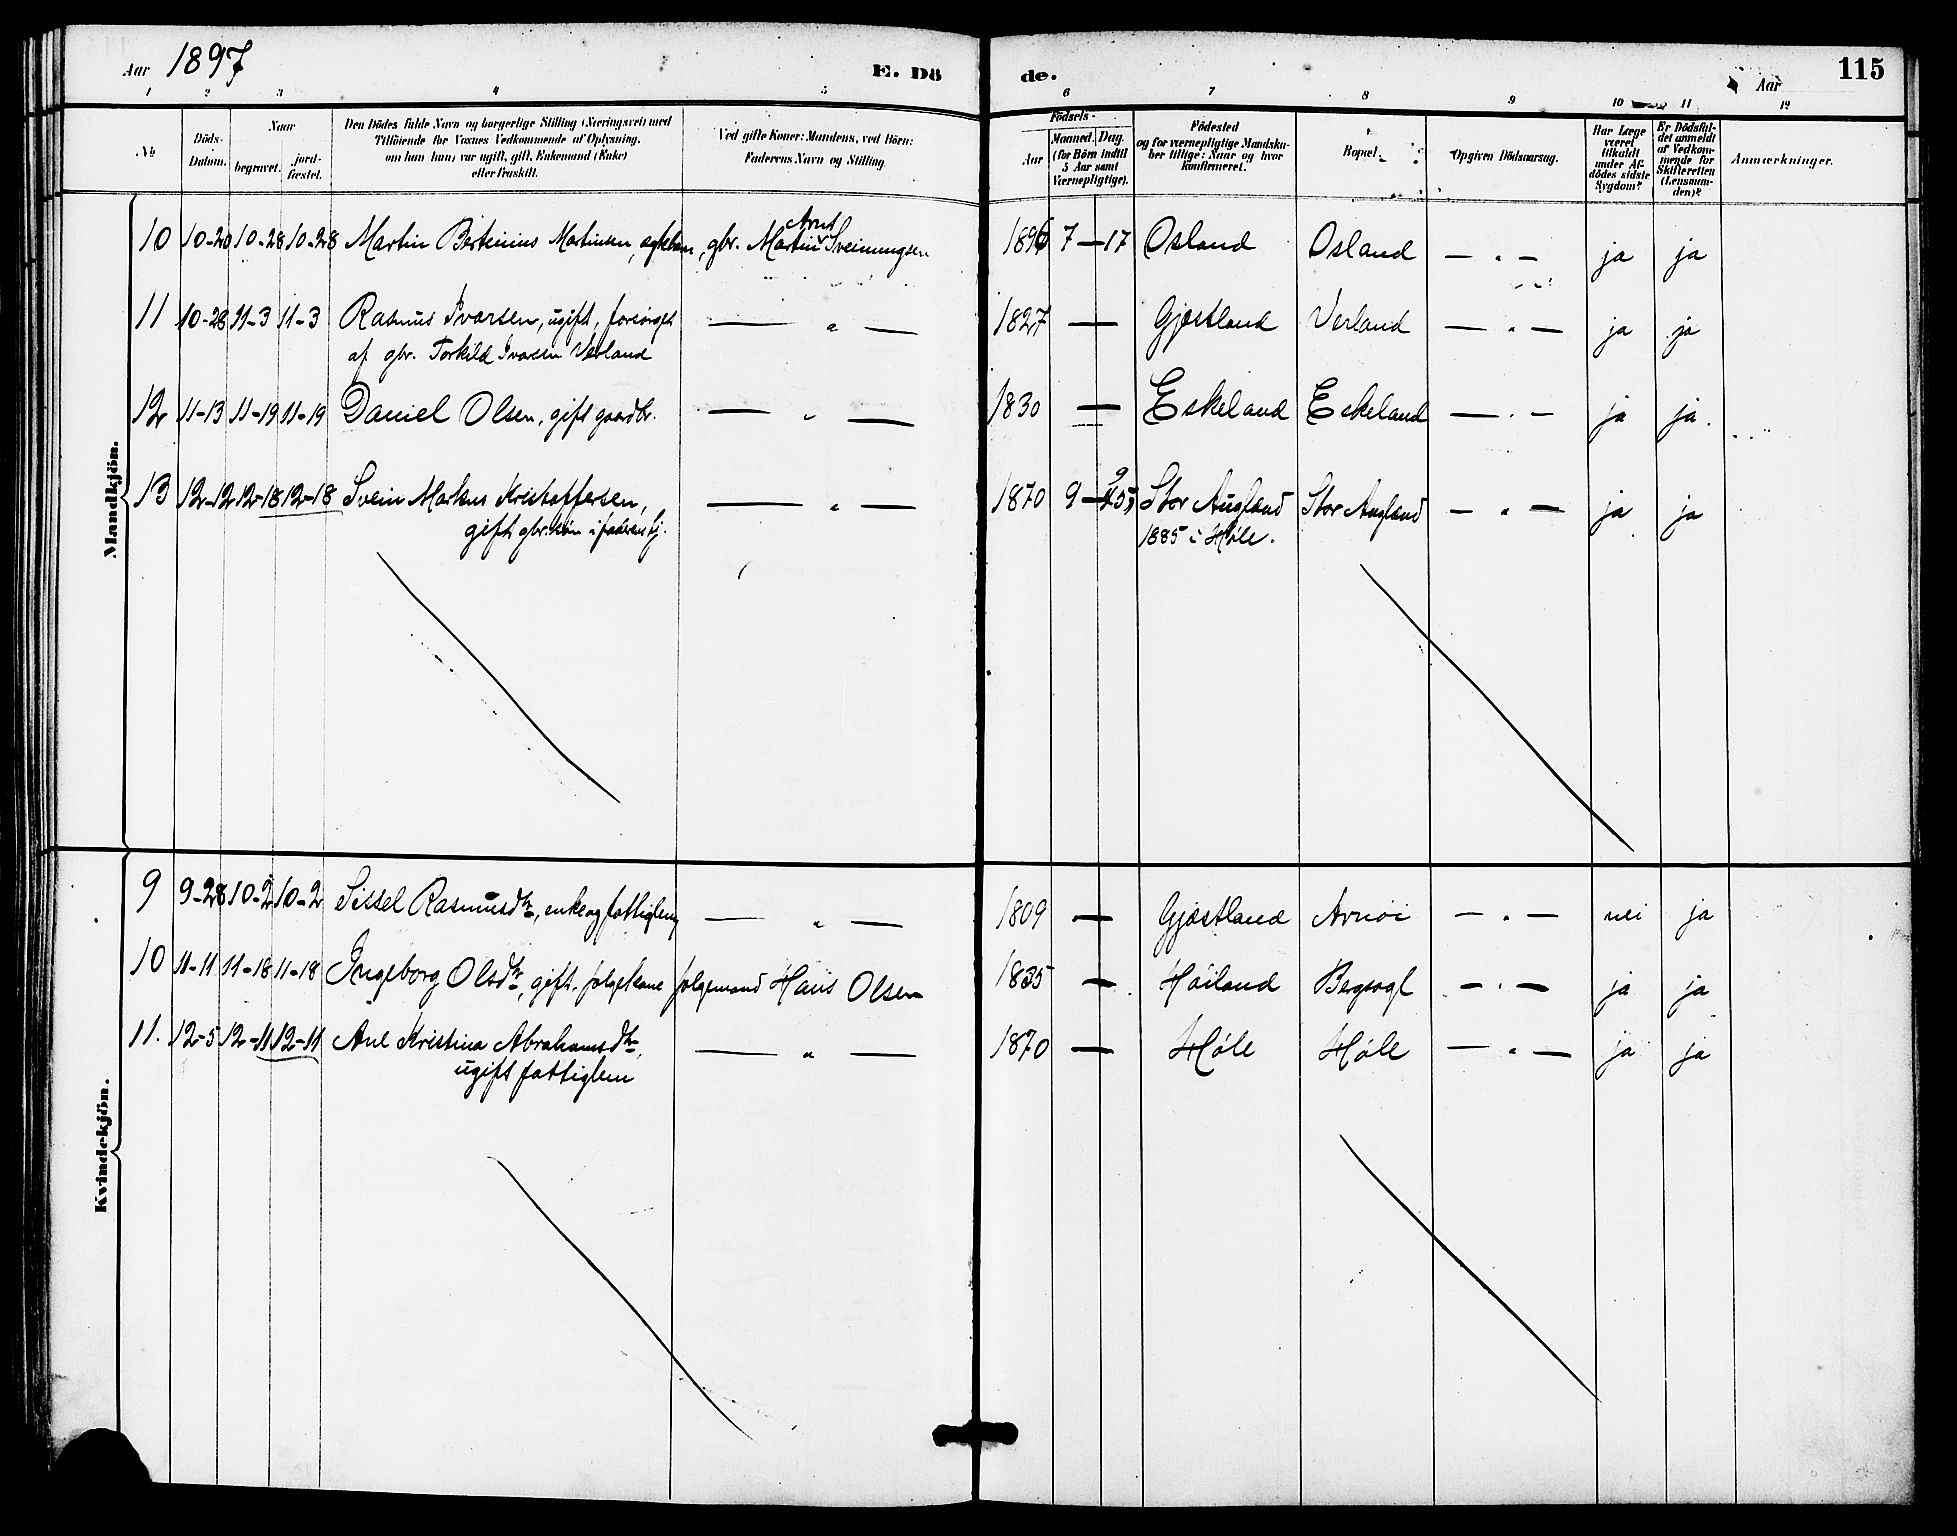 Aar 1897 E. Dö de. Aar 115
1 2 3 4 5 6 7 8 9 10 11 12
No
Döds-Datum.
Naar begravet. jord-fæstet.
Den Dödes fulde Navn og borgerlige Stilling (Næringsvei) med
Tilföiende for Voxnes Vedkommende af Oplysning,
om han (hun) var ugift, gift, Enkemand (Enke)
eller fraskilt.
Ved gifte Koner: Mandens, ved Börn:
Faderens Navn og Stilling.
Födsels-
Aar Maaned. Dag.
(for Börn indtil
5 Aar samt
Værnepligtige).
Födested
og for værnepligtige Mandska-
ber tillige: Naar og hvor
konfirmeret.
Bopæl.
Opgiven Dödsaarsag.
Har Læge
været
tilkaldt
under Af-
dödes sidste
Sygdom?
Er Dödsfal-
det anmeldt
af Vedkom-
mende for
Skifteretten
(Lensman-
den)?
Anmærkninger.
Mandkjön.
Arnt
10 10-20 10-28 10-28 Martin Bertinius Martinsen, ægteb., gbr. Martin Sveinungsen 1896 7 — 17 Osland Osland — " — ja ja
11 10-28 11-3 11-3 Rasmus Ivarsen, ugift, forsørget — " — 1827 — Gjestland Verland — " — ja ja
af gbr. Torkild Ivarsen Verland
12 11-13 11-19 11-19 Daniel Olsen, gift gaardbr. — " — 1830 — Eskeland Eskeland — " — ja ja.
13 12-12 12-18 12-18 Svein Markus Kristoffersen, — " — 1870 9 — Stor Augland Stor Augland — " — ja ja
gift gbr. søn i faderens hj. 1885 i Høle.
Kvindekjön.
9 9-28 10-2 10-2 Sissel Rasmusdtr, enke og fattiglem — " — 1809 — Gjæstland Avnöi — " — nei ja
10 11-11 11-18 11-18 Ingeborg Olsdtr, gift, folgekone folgemand Hans Olsen 1835 — Høiland Bergsagl — " — ja ja
11. 12-5 12-11 12-11 Ane Kristina Abrahamsdtr, — " — 1870 — Høle Høle — " — ja ja
ugift fattiglem